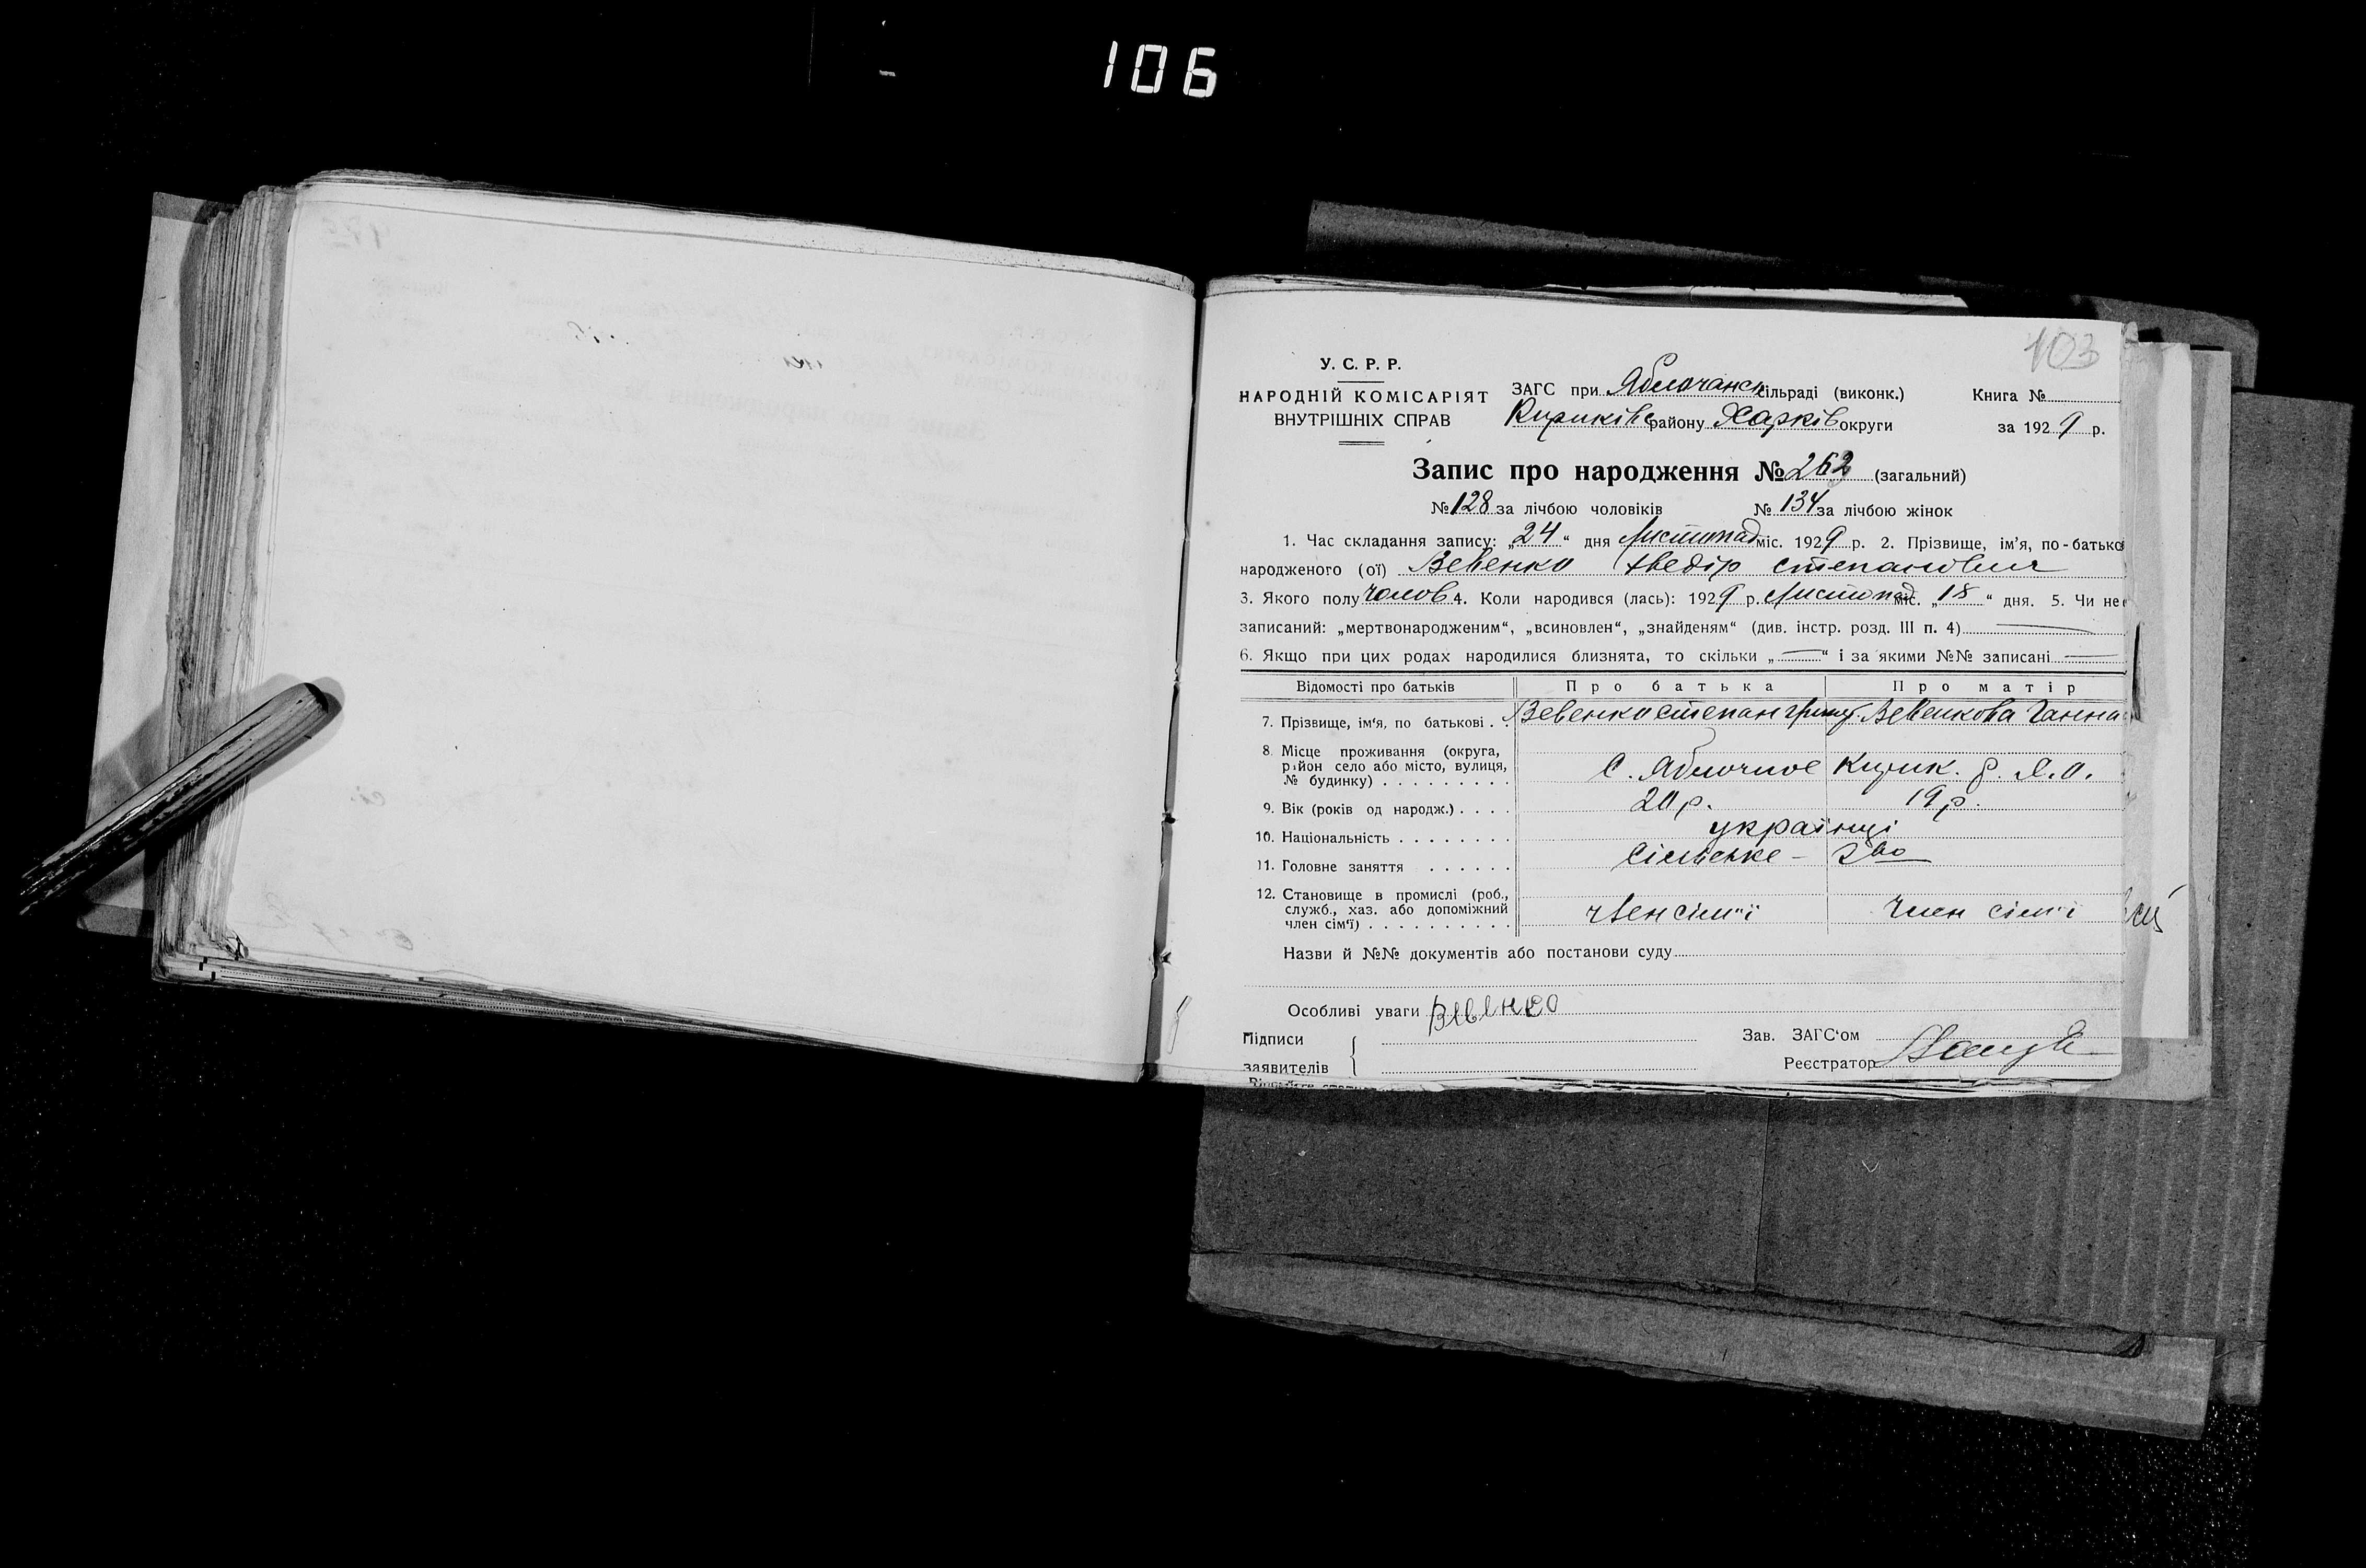 106
103
У. С. Р. Р.
НАРОДНІЙ КОМІСАРІЯТ
ВНУТРІШНІХ СПРАВ
ЗАГС при Яблочанск сільраді (виконк.) Книга №
Кириківс району Харків округи за 1929 р.
Запис про народження № 262 (загальний)
№ 128 за лічбою чоловіків № 134 за лічбою жінок
1. Час складання запису: „24“ дня Листопад міс. 1929 р. 2. Прізвище, ім’я, по-батьков
народженого (ої) Зевенко Хведір Степанович
3. Якого полу Чолов 4. Коли народився (лась): 1929 р. Листопад міс. „18“ дня. 5. Чи не є
записаний: „мертвонародженим“, „всиновлен“, „знайденям“ (див. інстр. розд. III п. 4)
6. Якщо при цих родах народилися близнята, то скільки „—“ і за якими №№ записані —
Відомості про батьків Про батька Про матір
7. Прізвище, ім‘я, по батькові . . Зевенко Степан Зевенкова Ганна
8. Місце проживання (округа,
район село або місто, вулиця,
№ будинку) . . . . . . . . . С. Яблочное Кирик. р. Х.О.
9. Вік (років од народж.) . . . . 20 р. 19 р.
10. Національність . . . . . . . . українці
11. Головне заняття . . . . . . Сільське - г-во
12. Становище в промислі (роб.,
служб., хаз. або допоміжний
член сім‘ї) . . . . . . . . . . . член сім"ї Член сім"ї
Назви й №№ документів або постанови суду
Особливі уваги Зевенко
Підписи
заявителів
Зав. ЗАГС‘ом
Реєстратор